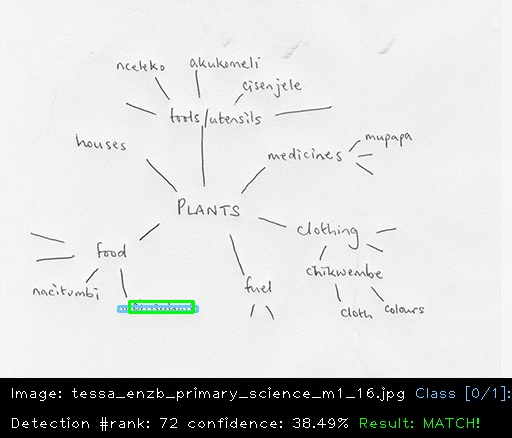 nceleko akukomeli
cisenjele
tools/utensils
houses
mupapa
medicines
PLANTS
clothing
food
chikwembe
nacitumbi
fuel
cloth colours
Image: tessa_enzb_primary_science_m1_16.jpg Class [0/1]:
Detection #rank: 72 confidence: 38.49% Result: MATCH!